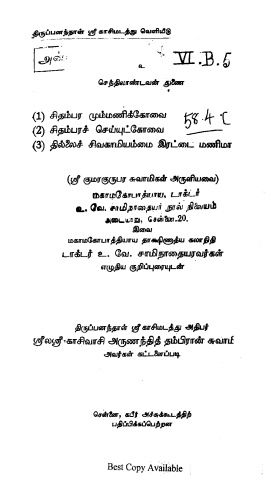 திருப்பனந்தாள் ஸ்ரீ காசிமடத்து வெளியீடு
உ
VI.B.5
செந்திலாண்டவன் துணை
(1) சிதம்பர மும்மணிக்கோவை
584
(2) சிதம்பரச் செய்யுட்கோவை
(3) தில்லைச் சிவகாமியம்மை இரட்டை மணிமா
(ஸ்ரீ குமரகுருபர சுவாமிகள் அருளியவை)
மகாமகோபாத்யாய, டாக்டர்
உ. வே. சாமிநாதையர் நூல் நிலையம்
அடையாறு, சென்னை-20.
இவை
மகாமகோபாத்தியாய தாக்ஷிணாத்ய கலாநிதி
டாக்டர் உ. வே. சாமிநாதையரவர்கள்
எழுதிய குறிப்புரையுடன்
திருப்பனந்தாள் ஸ்ரீ காசிமடத்து அதிபர்
ஸ்ரீலஸ்ரீ-காசிவாசி அருணந்தித் தம்பிரான் சுவாமி
அவர்கள் கட்டளைப்படி
சென்னை, கபீர் அச்சுக்கூடத்திற்
பதிப்பிக்கப்பெற்றன
Best Copy Available